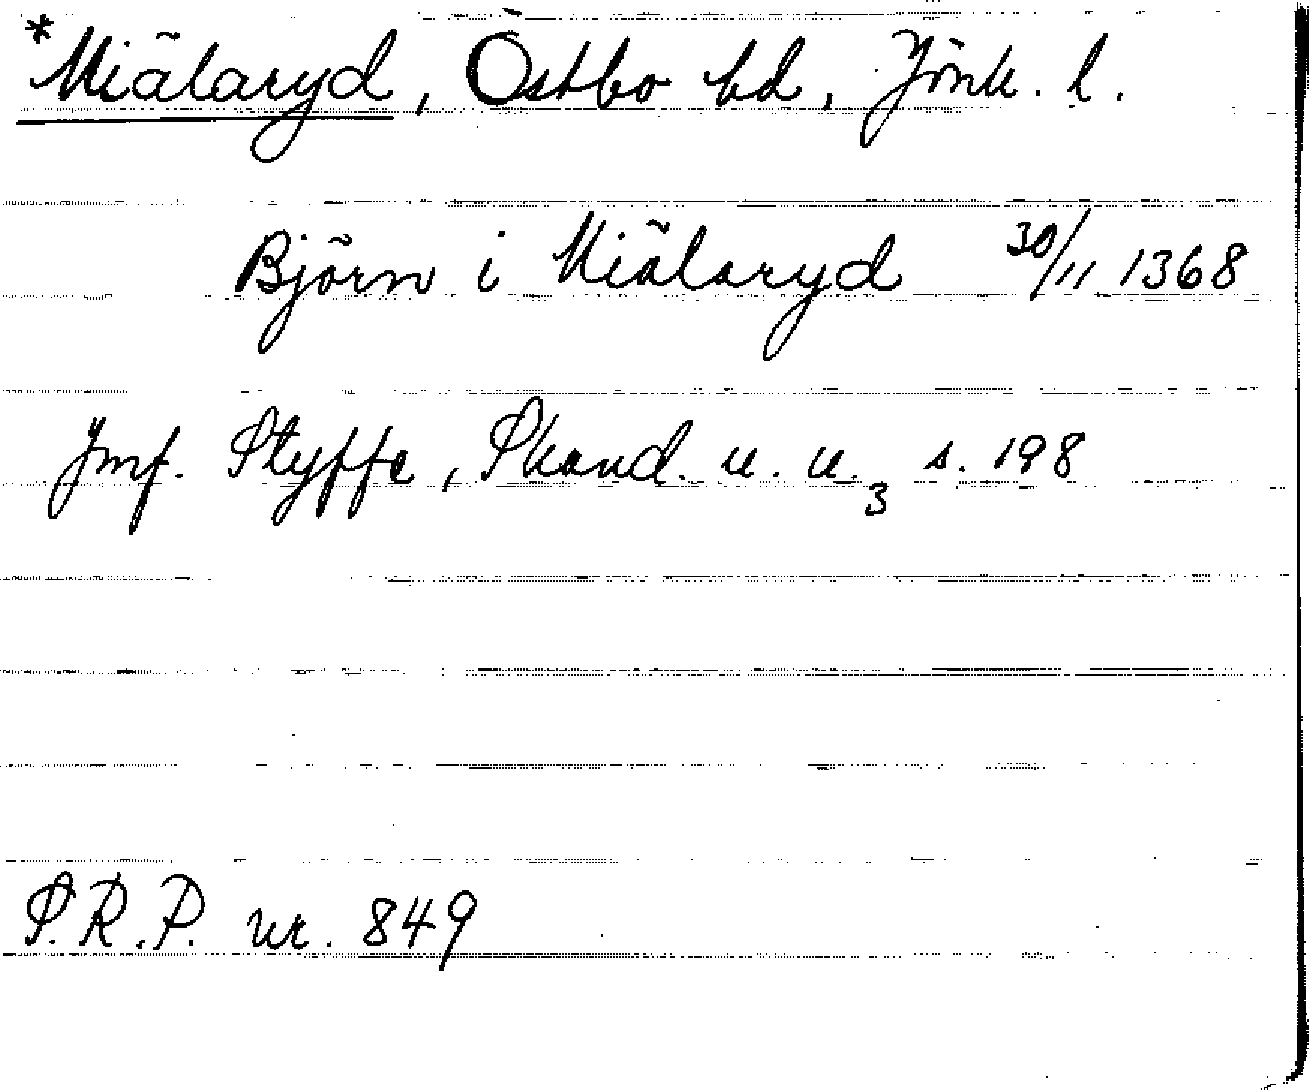 *Miälaryd, Östbo hd, Jönk. l.
Björn i Miälaryd 30/11 1368
Jmf. Styffe, Skand. u. u. 3 s. 198
S.R.P. nr. 849